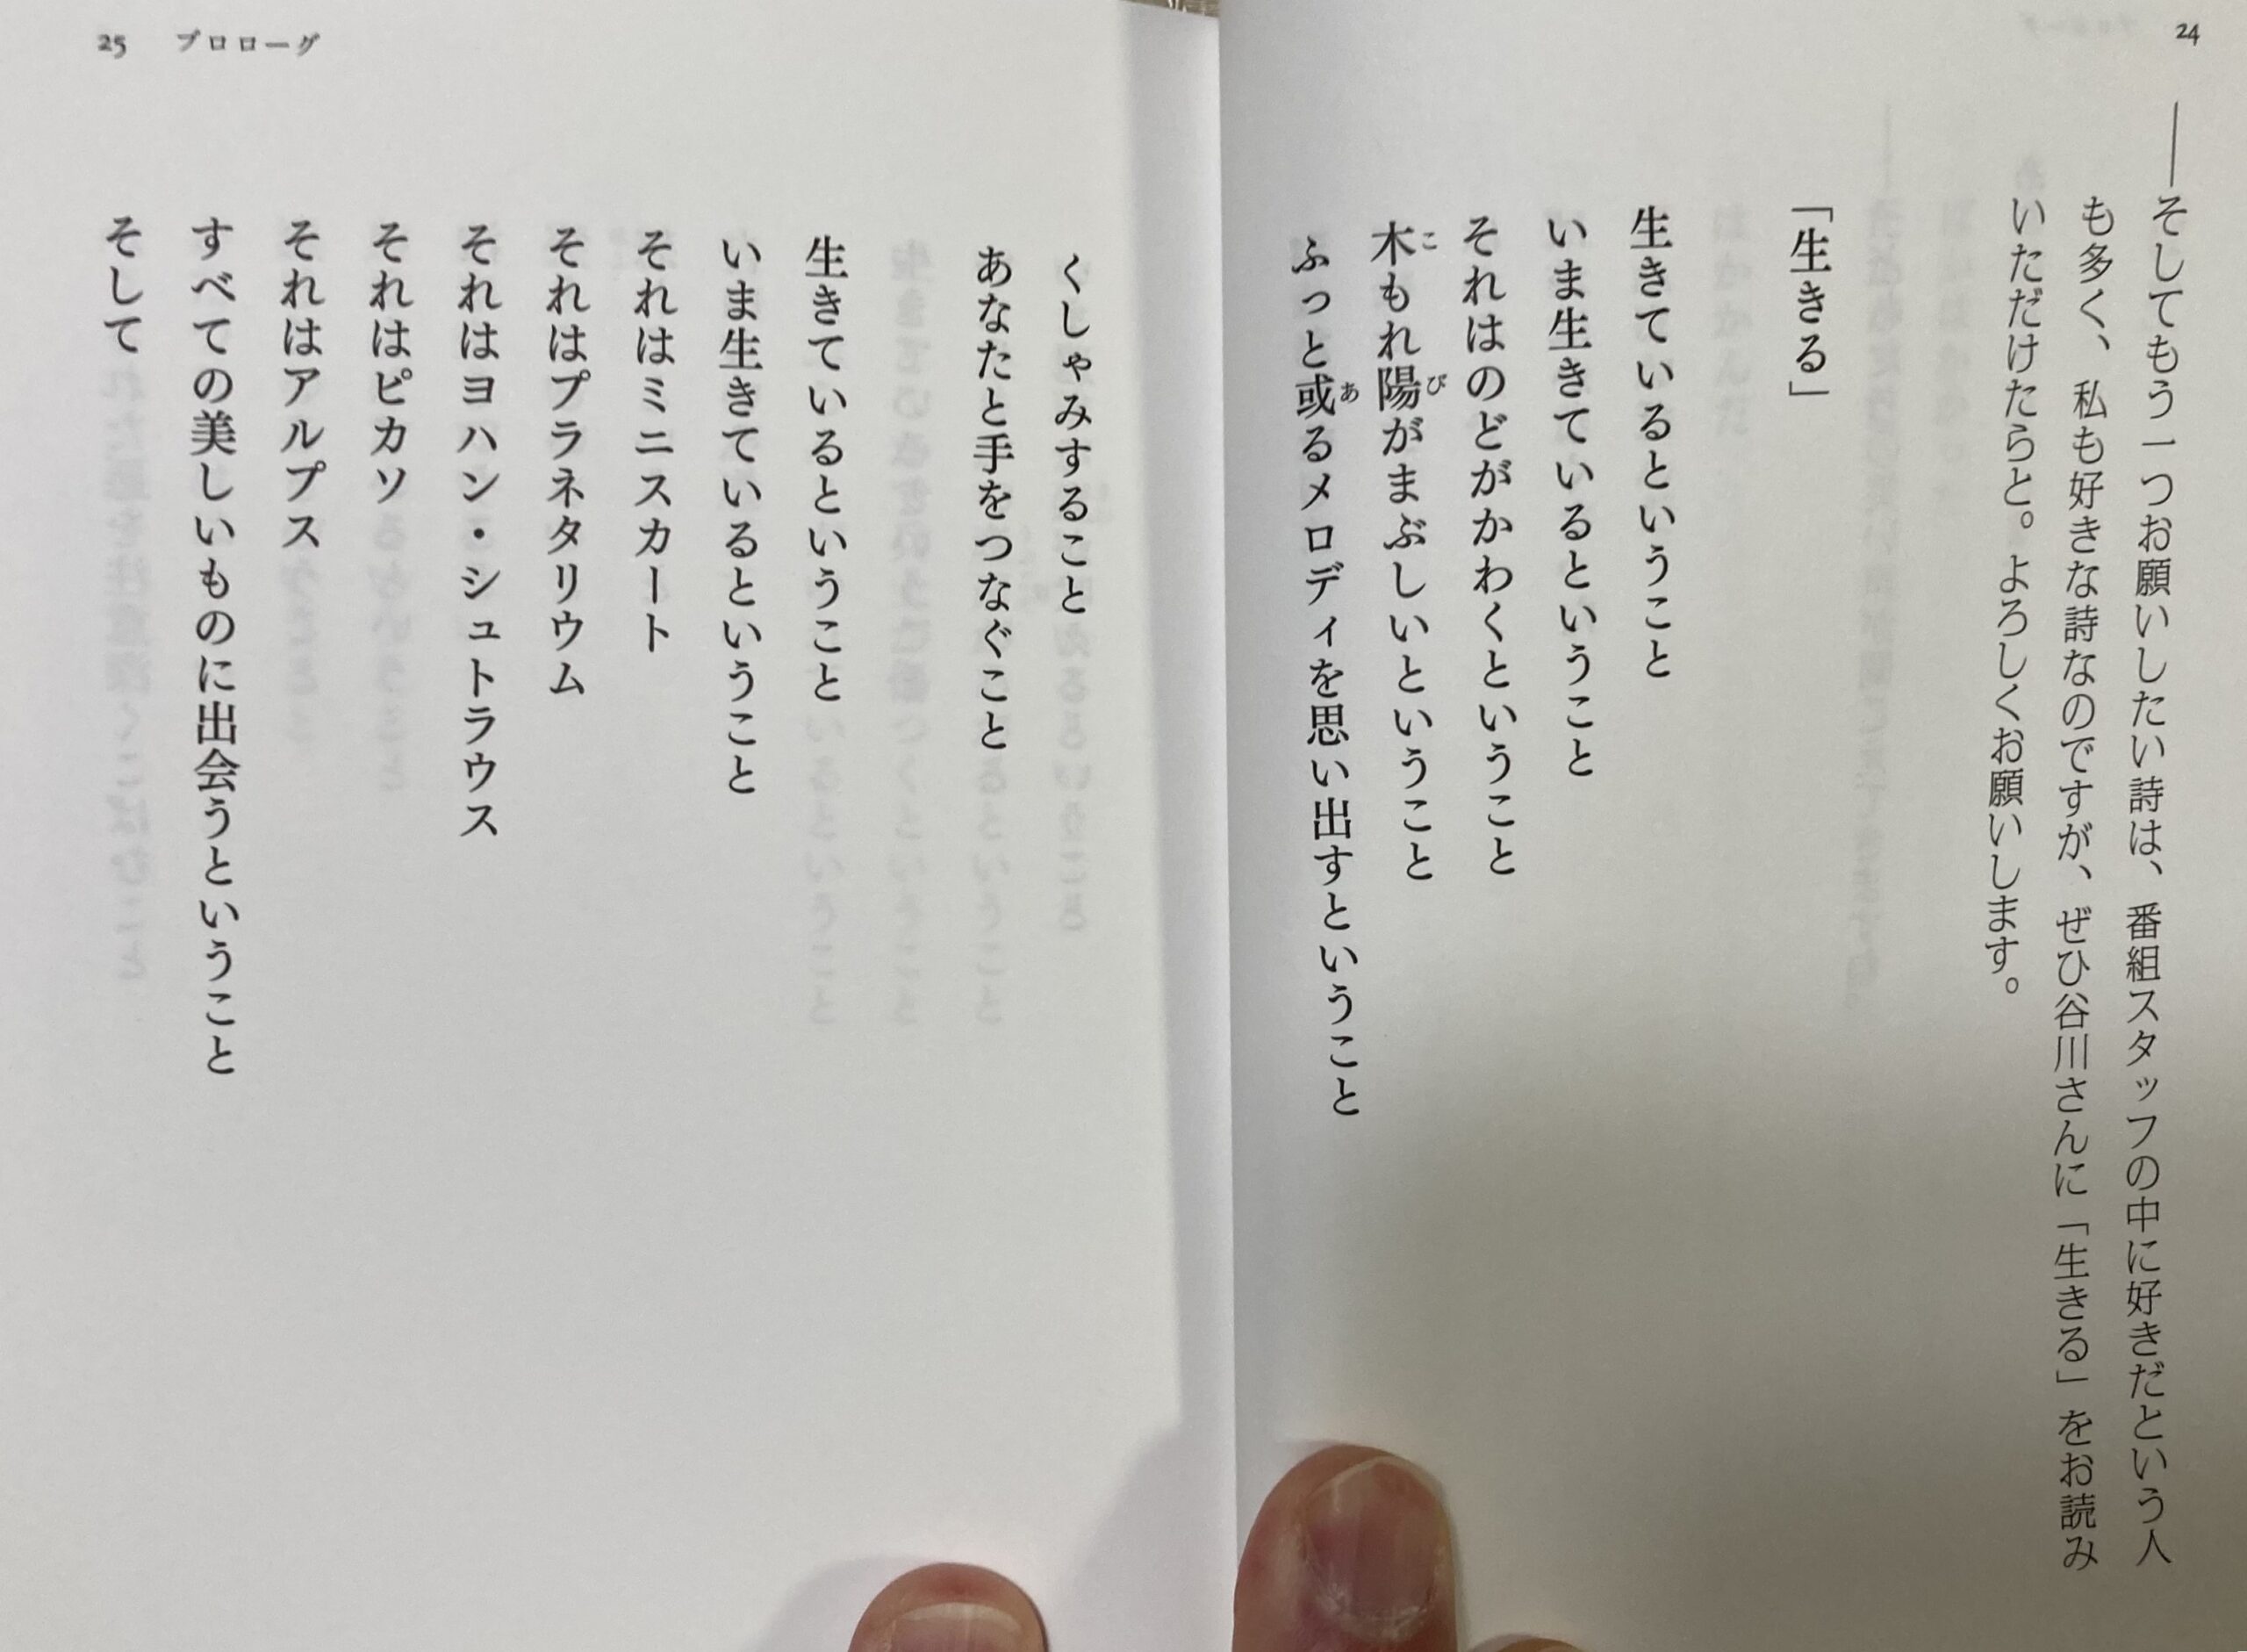 24
――そしてもう一つお願いしたい詩は、番組スタッフの中に好きだという人
も多く、私も好きな詩なのですが、ぜひ谷川さんに「生きる」をお読み
いただけたらと。よろしくお願いします。
「生きる」
生きているということ
いま生きているということ
それはのどがかわくということ
木もれ陽がまぶしいということ
ふっと或るメロディを思い出すということ
くしゃみすること
あなたと手をつなぐこと
生きているということ
いま生きているということ
それはミニスカート
それはプラネタリウム
それはヨハン・シュトラウス
それはピカソ
それはアルプス
すべての美しいものに出会うということ
そして
25 プロローグ